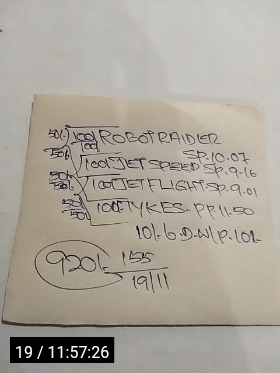 50/- 100/- ROBOT RAIDER
100 SP.10.07
50/- 100/- JET SPEED SP.9-16
50/- 100/- JET FLIGHT SP.9-01
50/- 50/- 100/- TYKES-PP.11-50
50/- 10/- 6 D.W/P.10/-
920/- 155
19/11
19 / 11:57:26